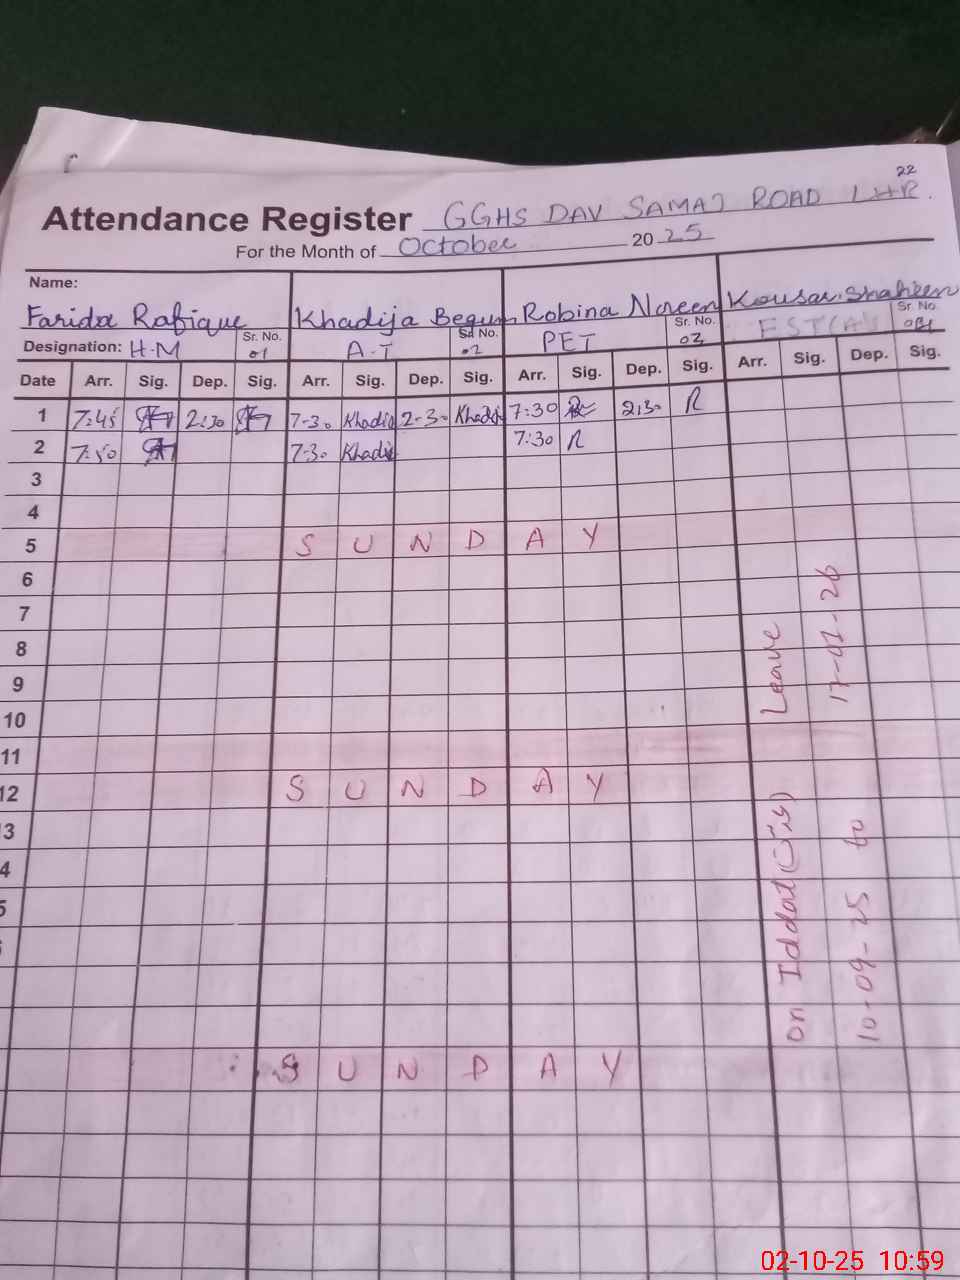 22
Attendance Register GGHS DAV SAMAJ ROAD LHR.
For the Month of October 2025
Name:
Farida Rafique Khadija Begum Robina Noreen Kousar Shaheen
Designation: H-M Sr. No. 01 A-T Sr. No. 02 PET Sr. No. 03 Sr. No.
Date Arr. Sig. Dep. Sig. Arr. Sig. Dep. Sig. Arr. Sig. Dep. Sig. Arr. Sig. Dep. Sig.
1 7:45 2:30 7-30 Khadija 2-30 Khadija 7:30 R 2:30 R
2 7:50 7-30 Khadija 7:30 R
3
4
5 S U N D A Y
6
7
8
9
10
11
12 S U N D A Y
3
4
5
S U N D A Y
on Iddat Leave
10-09-25 to 17-01-26
02-10-25 10:59